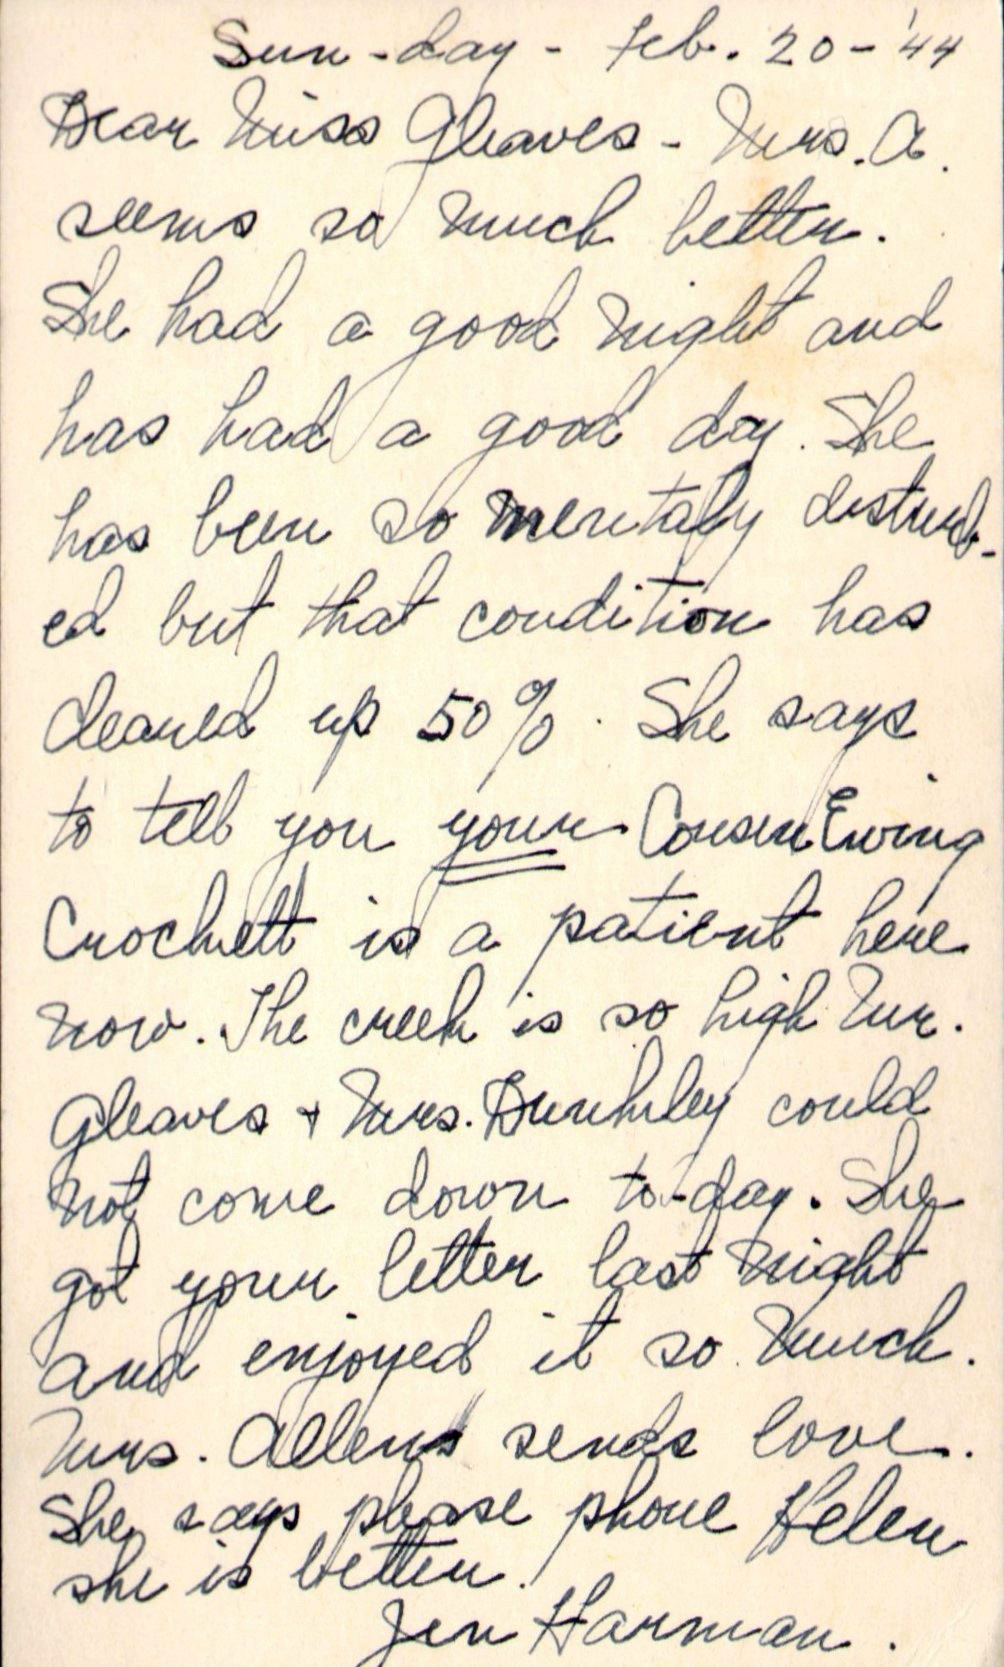 Sun-day - Feb. 20 - '44
Dear Miss Gleaves - Mrs. A.
seems so much better.
She had a good night and
has had a good day. She
has been so mentaly disturb-
ed but that condition has
cleared up 50%. She says
to tell you your Cousin Ewing
Crockett is a patient here
now. The creek is so high Mr.
Gleaves + Mrs. Brinkley could
not come down to-day. She
got your letter last night
and enjoyed it so much.
Mrs. Allen sends love.
She says please phone Helen
she is better.
Jen Harman.